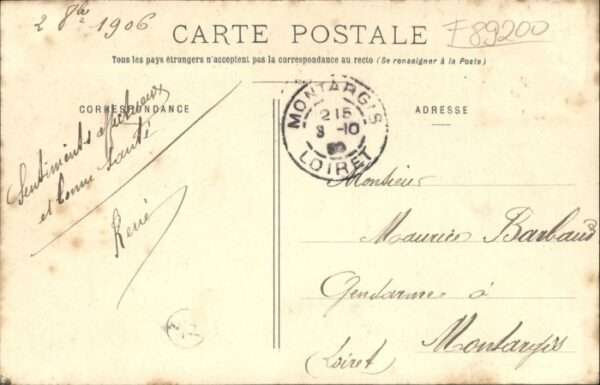 2 8bre 1906
F89200
CARTE POSTALE
Tous les pays étrangers n'acceptent pas la correspondance au recto (Se renseigner à la Poste)
CORRESPONDANCE
ADRESSE
Sentiments affectueux
et bonne santé
René
MONTARGIS
215
3 -10
LOIRET
Monsieur
Maurice Barbaud
Gendarme à
Montargis
(Loiret)